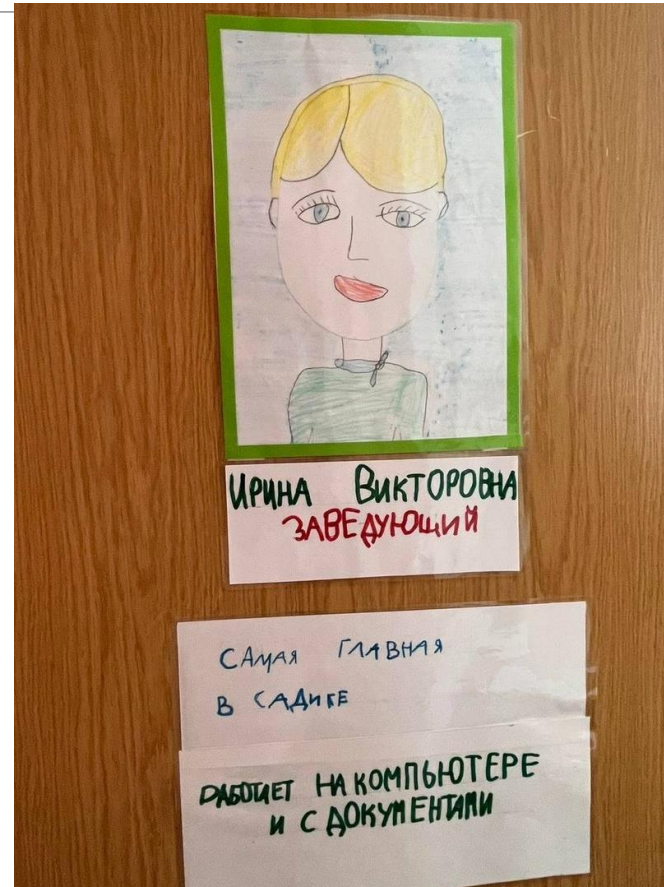 ИРИНА ВИКТОРОВНА
ЗАВЕДУЮЩИЙ
САМАЯ ГЛАВНАЯ
В САДИКЕ
РАБОТАЕТ НА КОМПЬЮТЕРЕ
И С ДОКУМЕНТАМИ